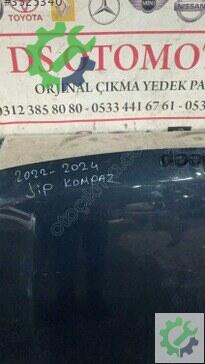 TOYOTA
MINI
DS OTOMOT
ORJİNAL ÇIKMA YEDEK PA
0312 385 80 80 - 0533 441 67 61 - 053
2022-2024
JİP KOMPAZ
Jeep